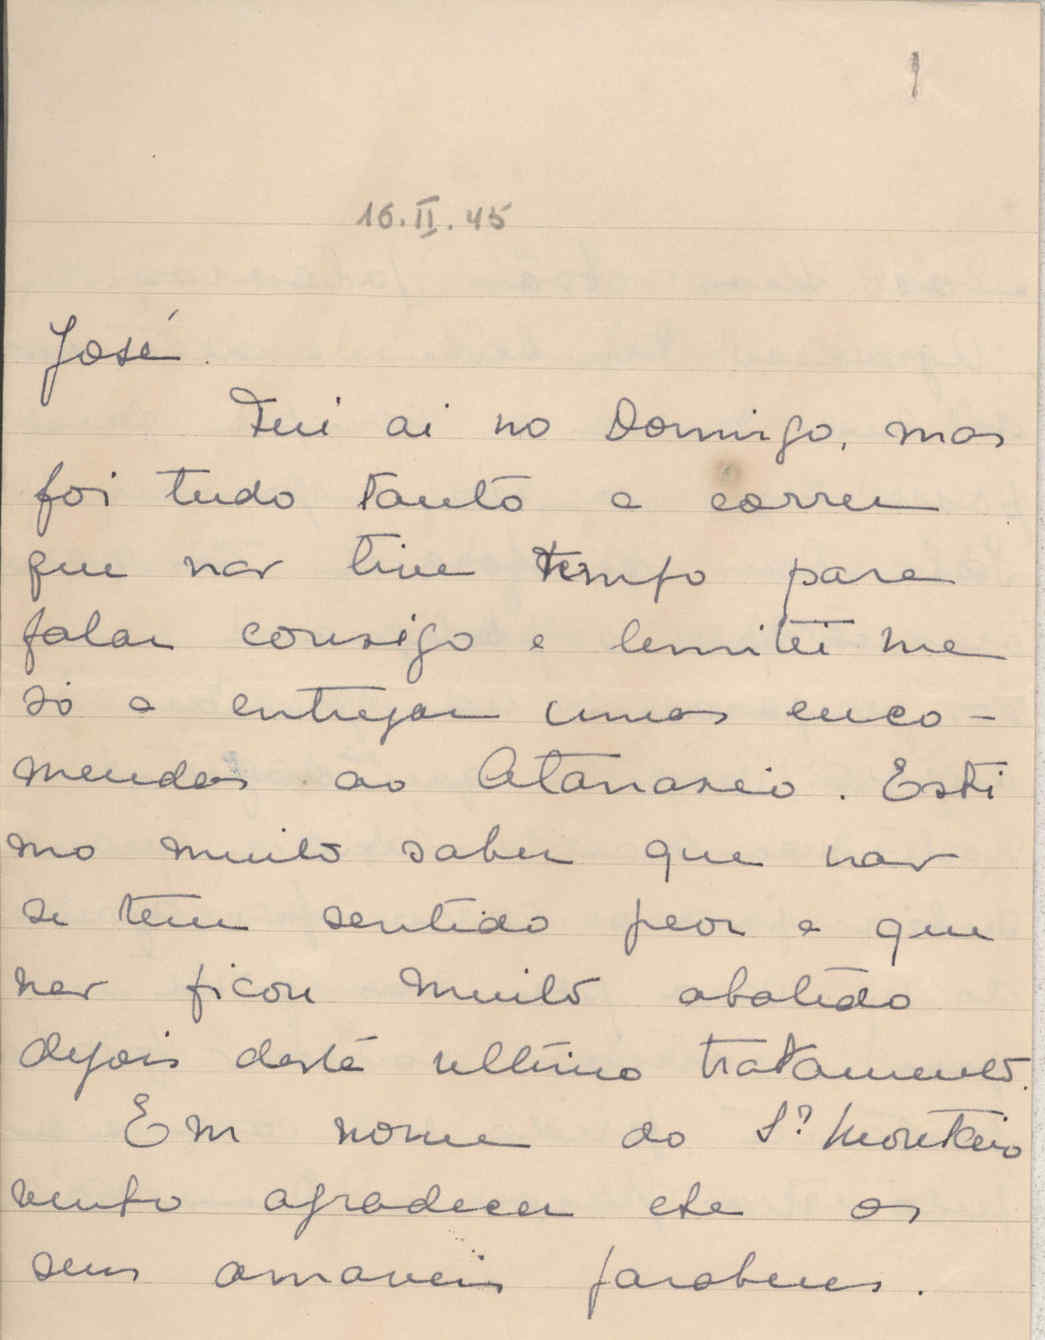 1
16.II.45
José
Fui ai no Domingo, mas
foi tudo tanto a correr
que nao tive tempo para
falar consigo e lemitei me
só a entregar umas enco-
mendas ao Atanasio. Esti
mo muito saber que nao
se tem sentido peor e que
nao ficou muito abatido
depois deste ultimo tratamento.
Em nome do Sr Monteiro
venho agradecer os
seus amaveis parabens.